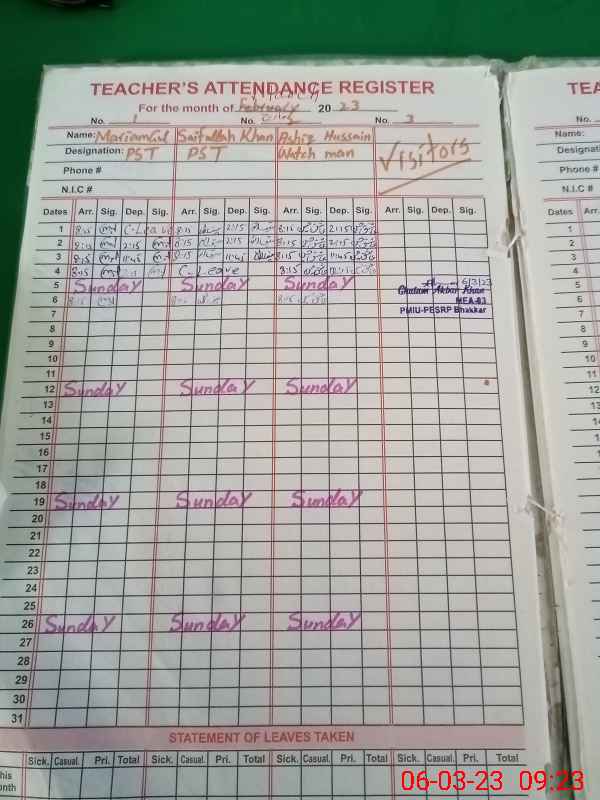 TEACHER'S ATTENDANCE REGISTER
For the month of February March 2023
No. 1 No. No. 3
Name: Mariam Gul Saifullah Khan Ashiq Hussain Visitors
Designation: PST PST Watch man
Phone #
N.I.C #
Dates Arr. Sig. Dep. Sig. Arr. Sig. Dep. Sig. Arr. Sig. Dep. Sig. Arr. Sig. Dep. Sig.
1 8:15 C-Leave 8:15 2:15 8:15 2:15
2 8:15 2:15 8:15 2:15 8:15 2:15
3 8:15 11:45 8:15 11:45 8:15 11:45
4 8:15 C-Leave 8:15
5 Sunday Sunday Sunday 6/3/23
Ghulam Akbar Khan
6 8:15 8:15 8:15 MEA-03
7 PMIU-PESRP Bhakkar
8
9
10
11
12 Sunday Sunday Sunday
13
14
15
16
17
18
19 Sunday Sunday Sunday
20
21
22
23
24
25
26 Sunday Sunday Sunday
27
28
29
30
31
STATEMENT OF LEAVES TAKEN
Sick. Casual. Pri. Total Sick. Casual. Pri. Total Sick. Casual. Pri. Total Sick. Casual. Pri. Total
his
onth
TEA
No.
Name:
Designati
Phone #
N.I.C #
Dates Arr.
1
2
3
4
5
6
7
8
9
10
11
12
13
14
15
16
17
18
19
20
21
22
23
24
25
26
27
28
29
30
31
06-03-23 09:23